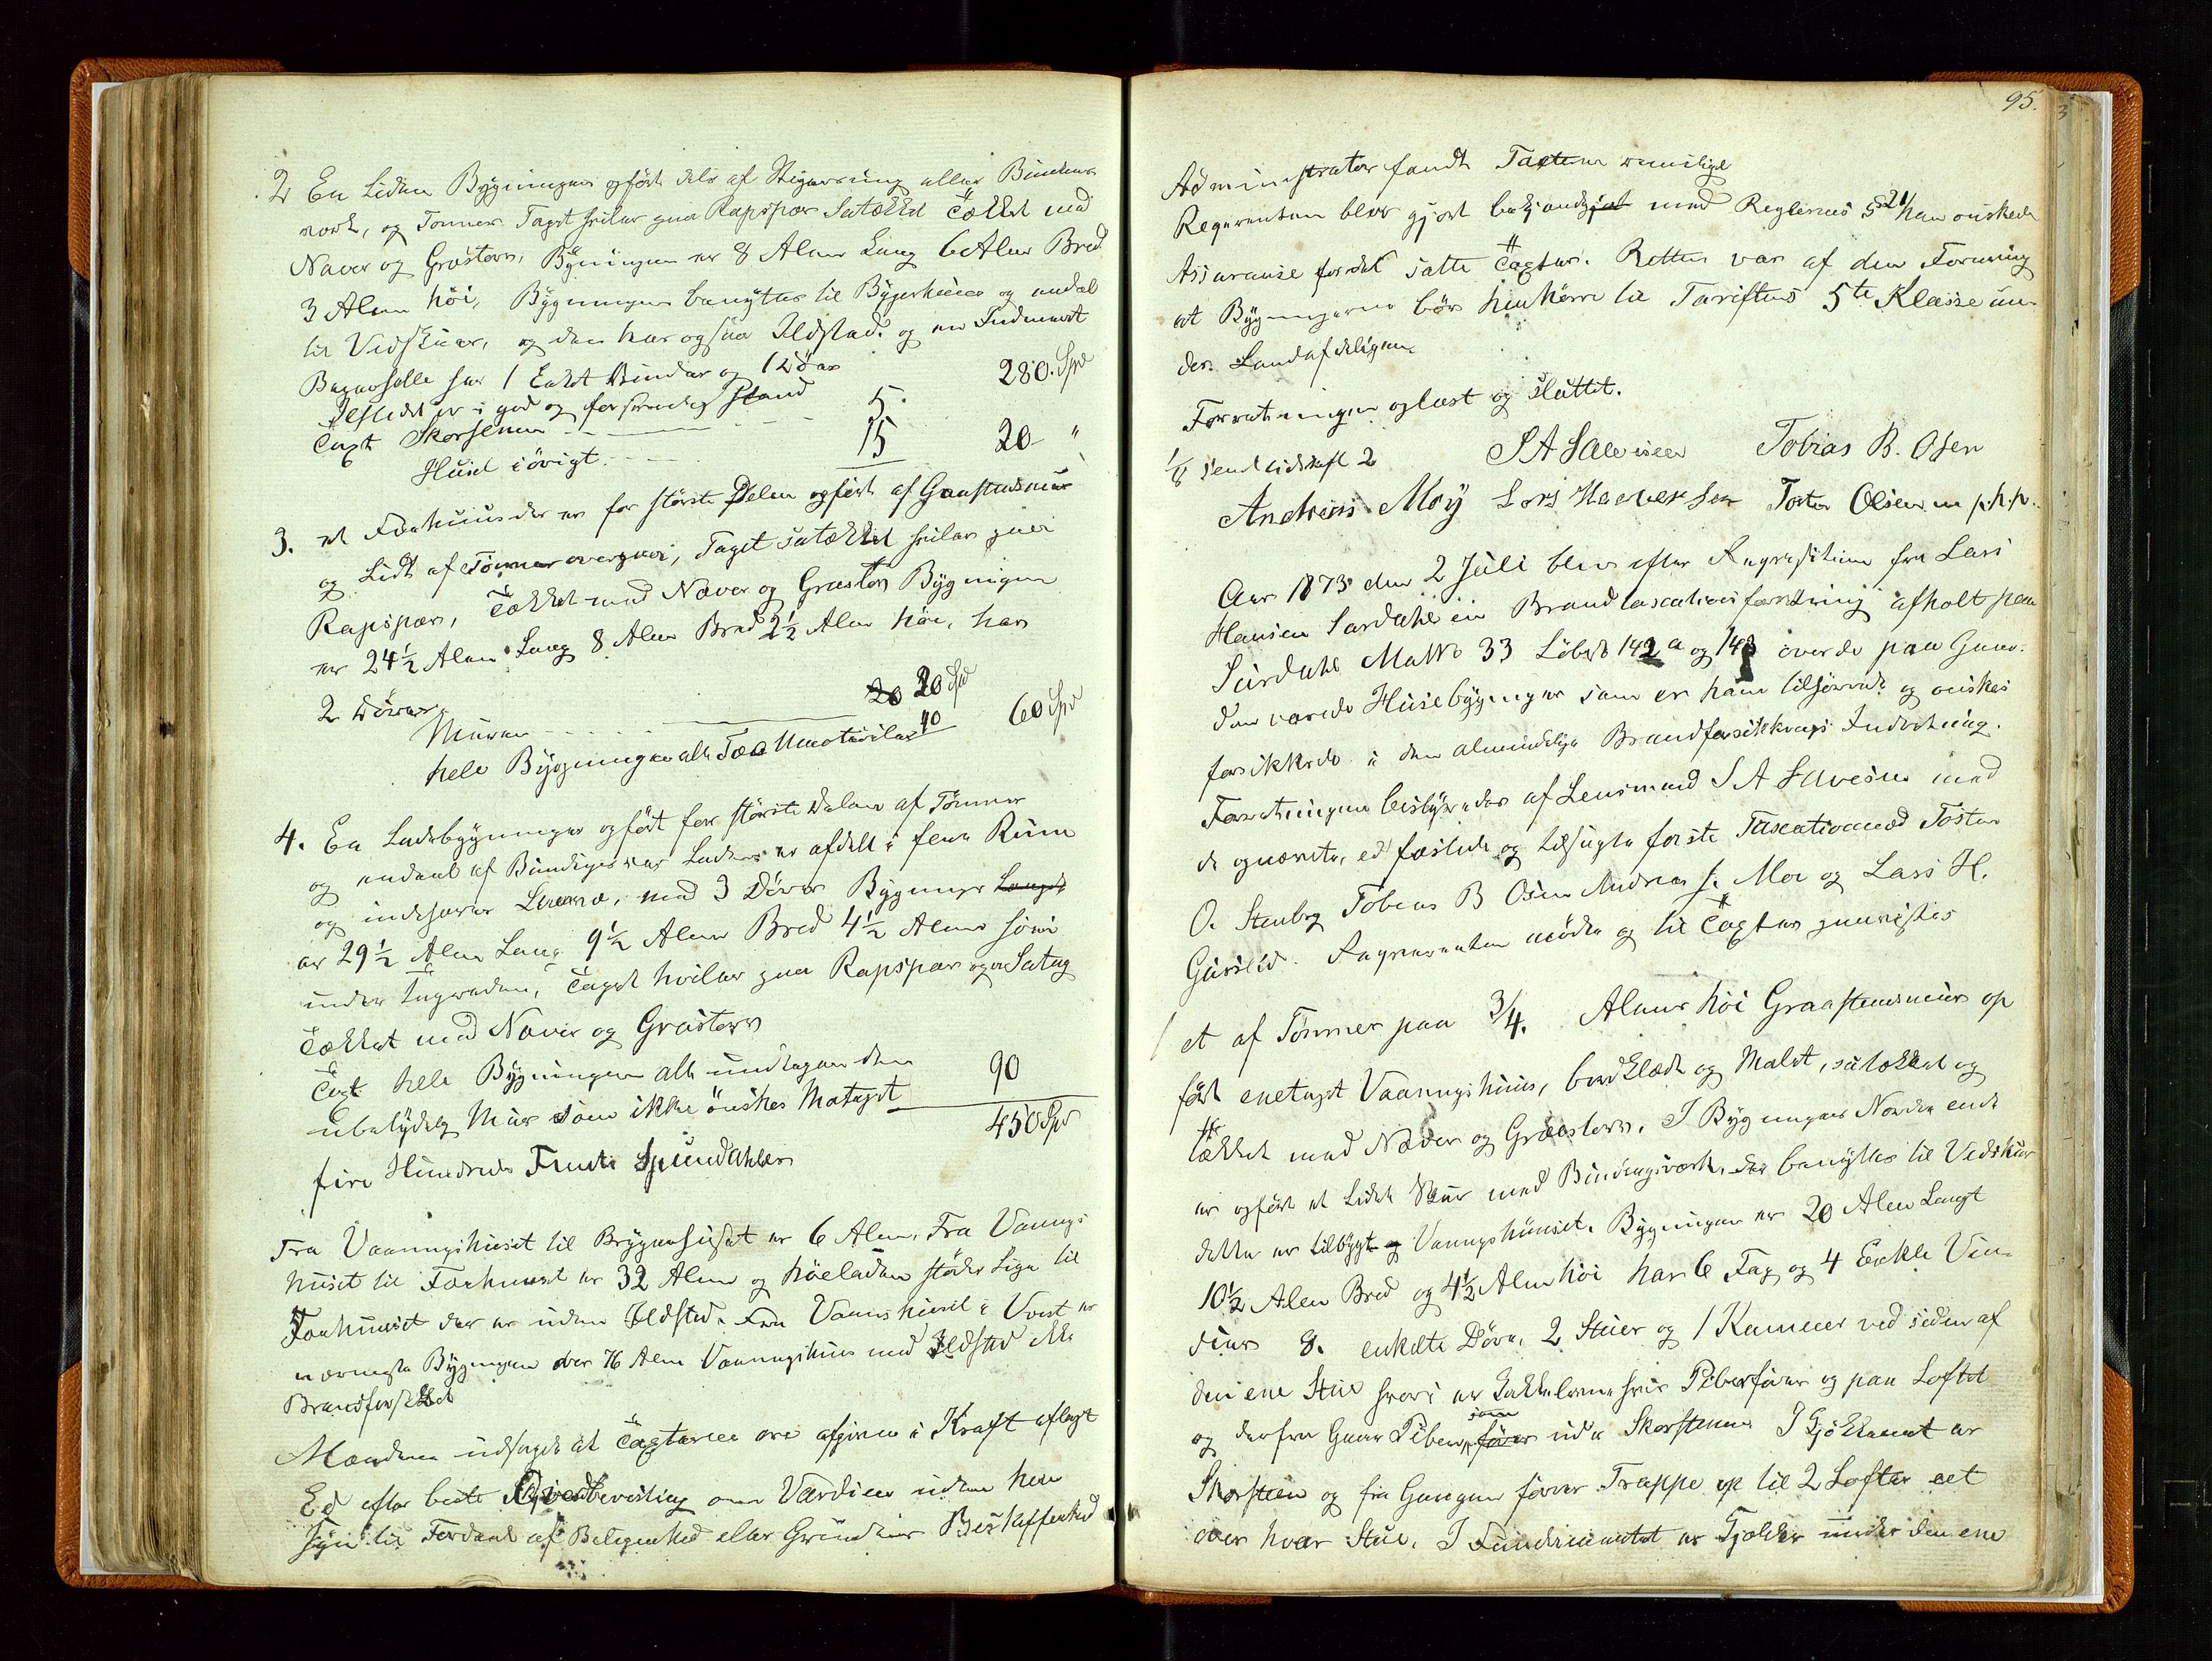 2 En Liden Bygningen opført dels af Stegværing eller Bindens
værk, og Tømmer Taget hviler paa Rapspær Sutækket Tækket med
Næver og Græstorv, Bygningen er 8 Alen Lang 6 Alen Bred
3 Alen høi, Bygningen benyttes til Bryggerhuus og endel
til Vedskuur, og den har ogsaa Ildsted og en Indmuret
Bagerhelle har 1 Enkt Vindue og 1 Dör
Ildstedet er i god og forsvarlig Stand 280. Spd
Taxt Skorstenen 5.
Huset iövrigt 15 20 "
3. et Fæhuus der er for störste Delen opfört af Graastensmur
og Lidt af Tömmer overpaa, Taget sutækket hviler paa
Rapspær, Tækket med Næver og Græstorv Bygningen
er 24½ Alen Lang 8 Alen Bred 2½ Alen höi, har
2 Dörer.
Muren 20 20 Spd
hele Bygningen alt Træ Materiler 40 60 Spd
4. En Ladebygningen opfört for störste Delen af Tömmer
og endeel af Bindigsvær Laden er afdelt i flere Rum
og indehaver Laave, med 3 Dörer Bygningen Længde
er 29½ Alen Lang 9½ Alen Bred 4½ Alen höi
under Tagraden, Taget hviler paa Rapspær og er Sutag
Tækket med Næver og Græstorv
Taxt hele Bygningen alt undtagen den 90
ubetydelig Mur som ikke önskes Mataxt
450 Spd
fire Hundrede Femti Speciedahler
Fra Vaaningshuset til Bryggerhuset er 6 Alen, Fra Vaanings
huset til Fæhuset er 32 Alen og höeladen stöder Lige til
Fæhuuset der er uden Ildsted. Fra Vaanshuset i Vest er
nærmeste Bygningen der 76 Alen Vaaningshuus med Ildsted ikke
Brandforsikket
Mændene udsagde at Taxterne ere afgivne i Kraft aflagt
Ed efter beste Overbevisning om Værdien uden hen
syn til Fordeel af Beliggenhed eller Grundens Beskaffenhed
95.
Administrator fandt Taxterne rimelige
Reqverenten blev gjort bekjendtgjort med Reglernes § 21 han önskede
Assuranse for det satte Taxter. Retten var af den Formening
at Bygningerne bör henhöre til Tariftens 5te Klasse un-
der Landafdeligen.
Forretningen oplæst og sluttet.
S A Salvesen Tobias B. Osen
Andreas Moÿ Lars Haaversen Tosten Olsen m p.h.p.
Aar 1873 den 2 Juli blev efter Reqvisition fra Lars
Hansen Surdahl en Brandtaxationsforretning afholt paa
Surdahl Mat No 33 Löbeb 142 a og 143 over de paa Gaar-
den værende Husebygninger som er ham tilhörende og önskes
forsikkrede i den almindelige Brandforsikkrings Indretning.
Forretningen bestyredes af Lensmand S A Salvesen med
de opnævnte, edfæstede og tilsagte faste Taxationsmænd Tosten
O. Stenberg Tobias B Osen Andreas J. Moe og Lars H.
Gurslid. Reqverenten mödte og til Taxter paavistes
1 et af Tömmer paa 3/4. Alens höi Graastensmur op
fört enetages Vaanngshuus, bordklædt og Malet, sutækket og
tækket med Næver og Græstorv. I Bygningens Nordre ende
er opfört et Lidet Skuur med Bindingsværk, der benyttes til Vedskuur
dette er tilbygt og Vaaningshuuset. Bygningen er 20 Alen Langt
10½ Alen Bred og 4½ Alen höi har 6 Fag og 4 Enkle Vin-
duer 8. enkelte Döre, 2 Stuer og 1 Kammer ved siden af
den ene Stue hvori er Kakkelovn hvis Piber förer og paa Loftet
og derfra Gaar Piben som förer ud i Skorstenen I Kjökkenet er
Skorsteen og fra Gangen förer Trappe op til 2 Lofter eet
over hver Stue. I Fundamentet er Kjelder under den ene